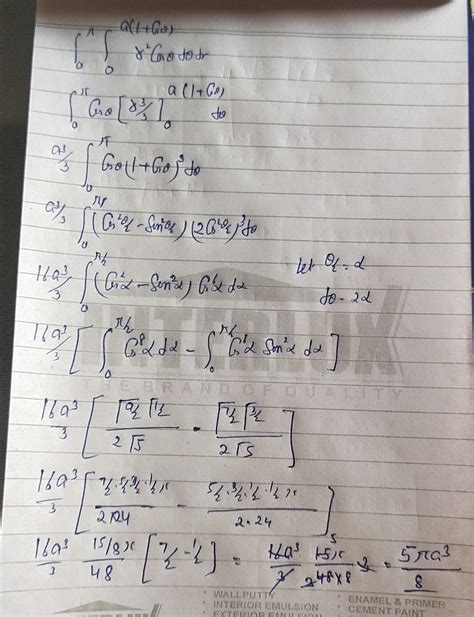 ∫₀^π ∫₀^{a(1+Cosθ)} r² Cosθ dθ dr
∫₀^π Cosθ [r³/3]₀^{a(1+Cosθ)} dθ
a³/3 ∫₀^π Cosθ (1+Cosθ)³ dθ
a³/3 ∫₀^π (Cos²θ/2 - Sin²θ/2) (2Cos²θ/2)³ dθ
16a³/3 ∫₀^{π/2} (Cos²α - Sin²α) Cos⁶α dα
let θ/2 = α
dθ = 2α
16a³/3 [ ∫₀^{π/2} Cos⁸α dα - ∫₀^{π/2} Cos⁶α Sin²α dα ]
THE BRAND OF QUALITY
16a³/3 [ Γ9/2 Γ1/2 / 2Γ5 - Γ7/2 Γ3/2 / 2Γ5 ]
16a³/3 [ 7/2·5/2·3/2·1/2 π / 2×24 - 5/2·3/2·1/2·1/2 π / 2·24 ]
16a³/3 15/8 π / 48 [ 7/2 - 1/2 ] = 16a³/3 15π / 48×8 · 3 = 5πa³/8
• WALLPUTTY
• INTERIOR EMULSION
• EXTERIOR EMULSION
• ENAMEL & PRIMER
• CEMENT PAINT